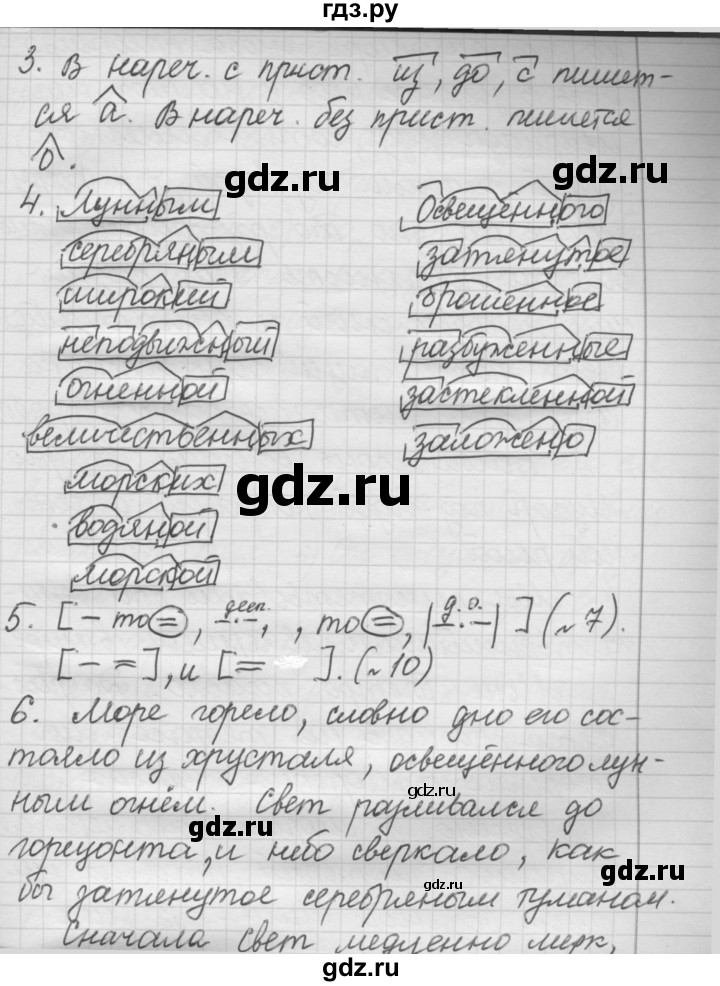 гдз.ру
3. В нареч. с прист. из, до, с пишет-
ся а. В нареч. без прист. пишется
о.
gdz.ru
gdz.ru
4. Лунным Освещённого
серебряным затянутое
широкий брошенное
неподвижный разбуженные
огненной застекленной
величественных заложено
морских
gdz.ru
водяной
морской
5. [– то =, дееп. , , то =, |д.о.|] (~7).
[– =], и [= ]. (~10)
6. Море горело, словно дно его сос-
тояло из хрусталя, освещённого лун-
gdz.ru
ным огнём. Свет разливался до
gdz.ru
горизонта, и небо сверкало, как
бы затянутое серебряным туманом.
gdz.ru
Сначала свет медленно мерк,
gdz.ru